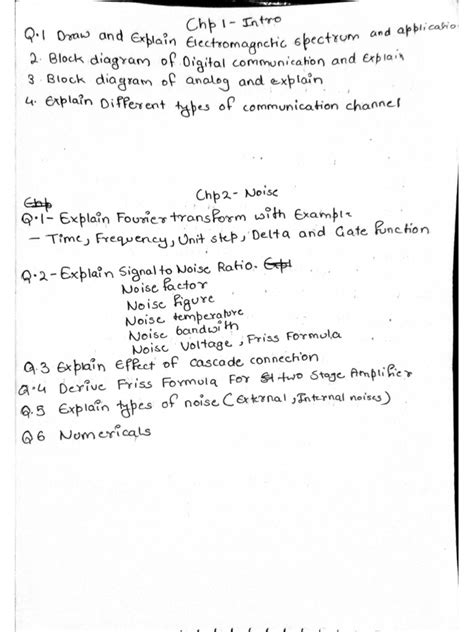 Chp 1 - Intro
Q.1 Draw and Explain Electromagnetic spectrum and applicatio
2. Block diagram of Digital communication and Explain
3 Block diagram of analog and explain
4. Explain Different types of communication channel
Chp
Chp2 - Noise
Q.1 - Explain Fourier transform with Example
- Time, Frequency, Unit step, Delta and Gate Function
Q.2 - Explain Signal to Noise Ratio. Expl
Noise factor
Noise Figure
Noise temperature
Noise bandwith
Noise Voltage, Friss Formula
Q.3 Explain Effect of cascade connection
Q.4 Derive Friss Formula For st two Stage Amplifier
Q.5 Explain types of noise (External, Internal noises)
Q6 Numericals